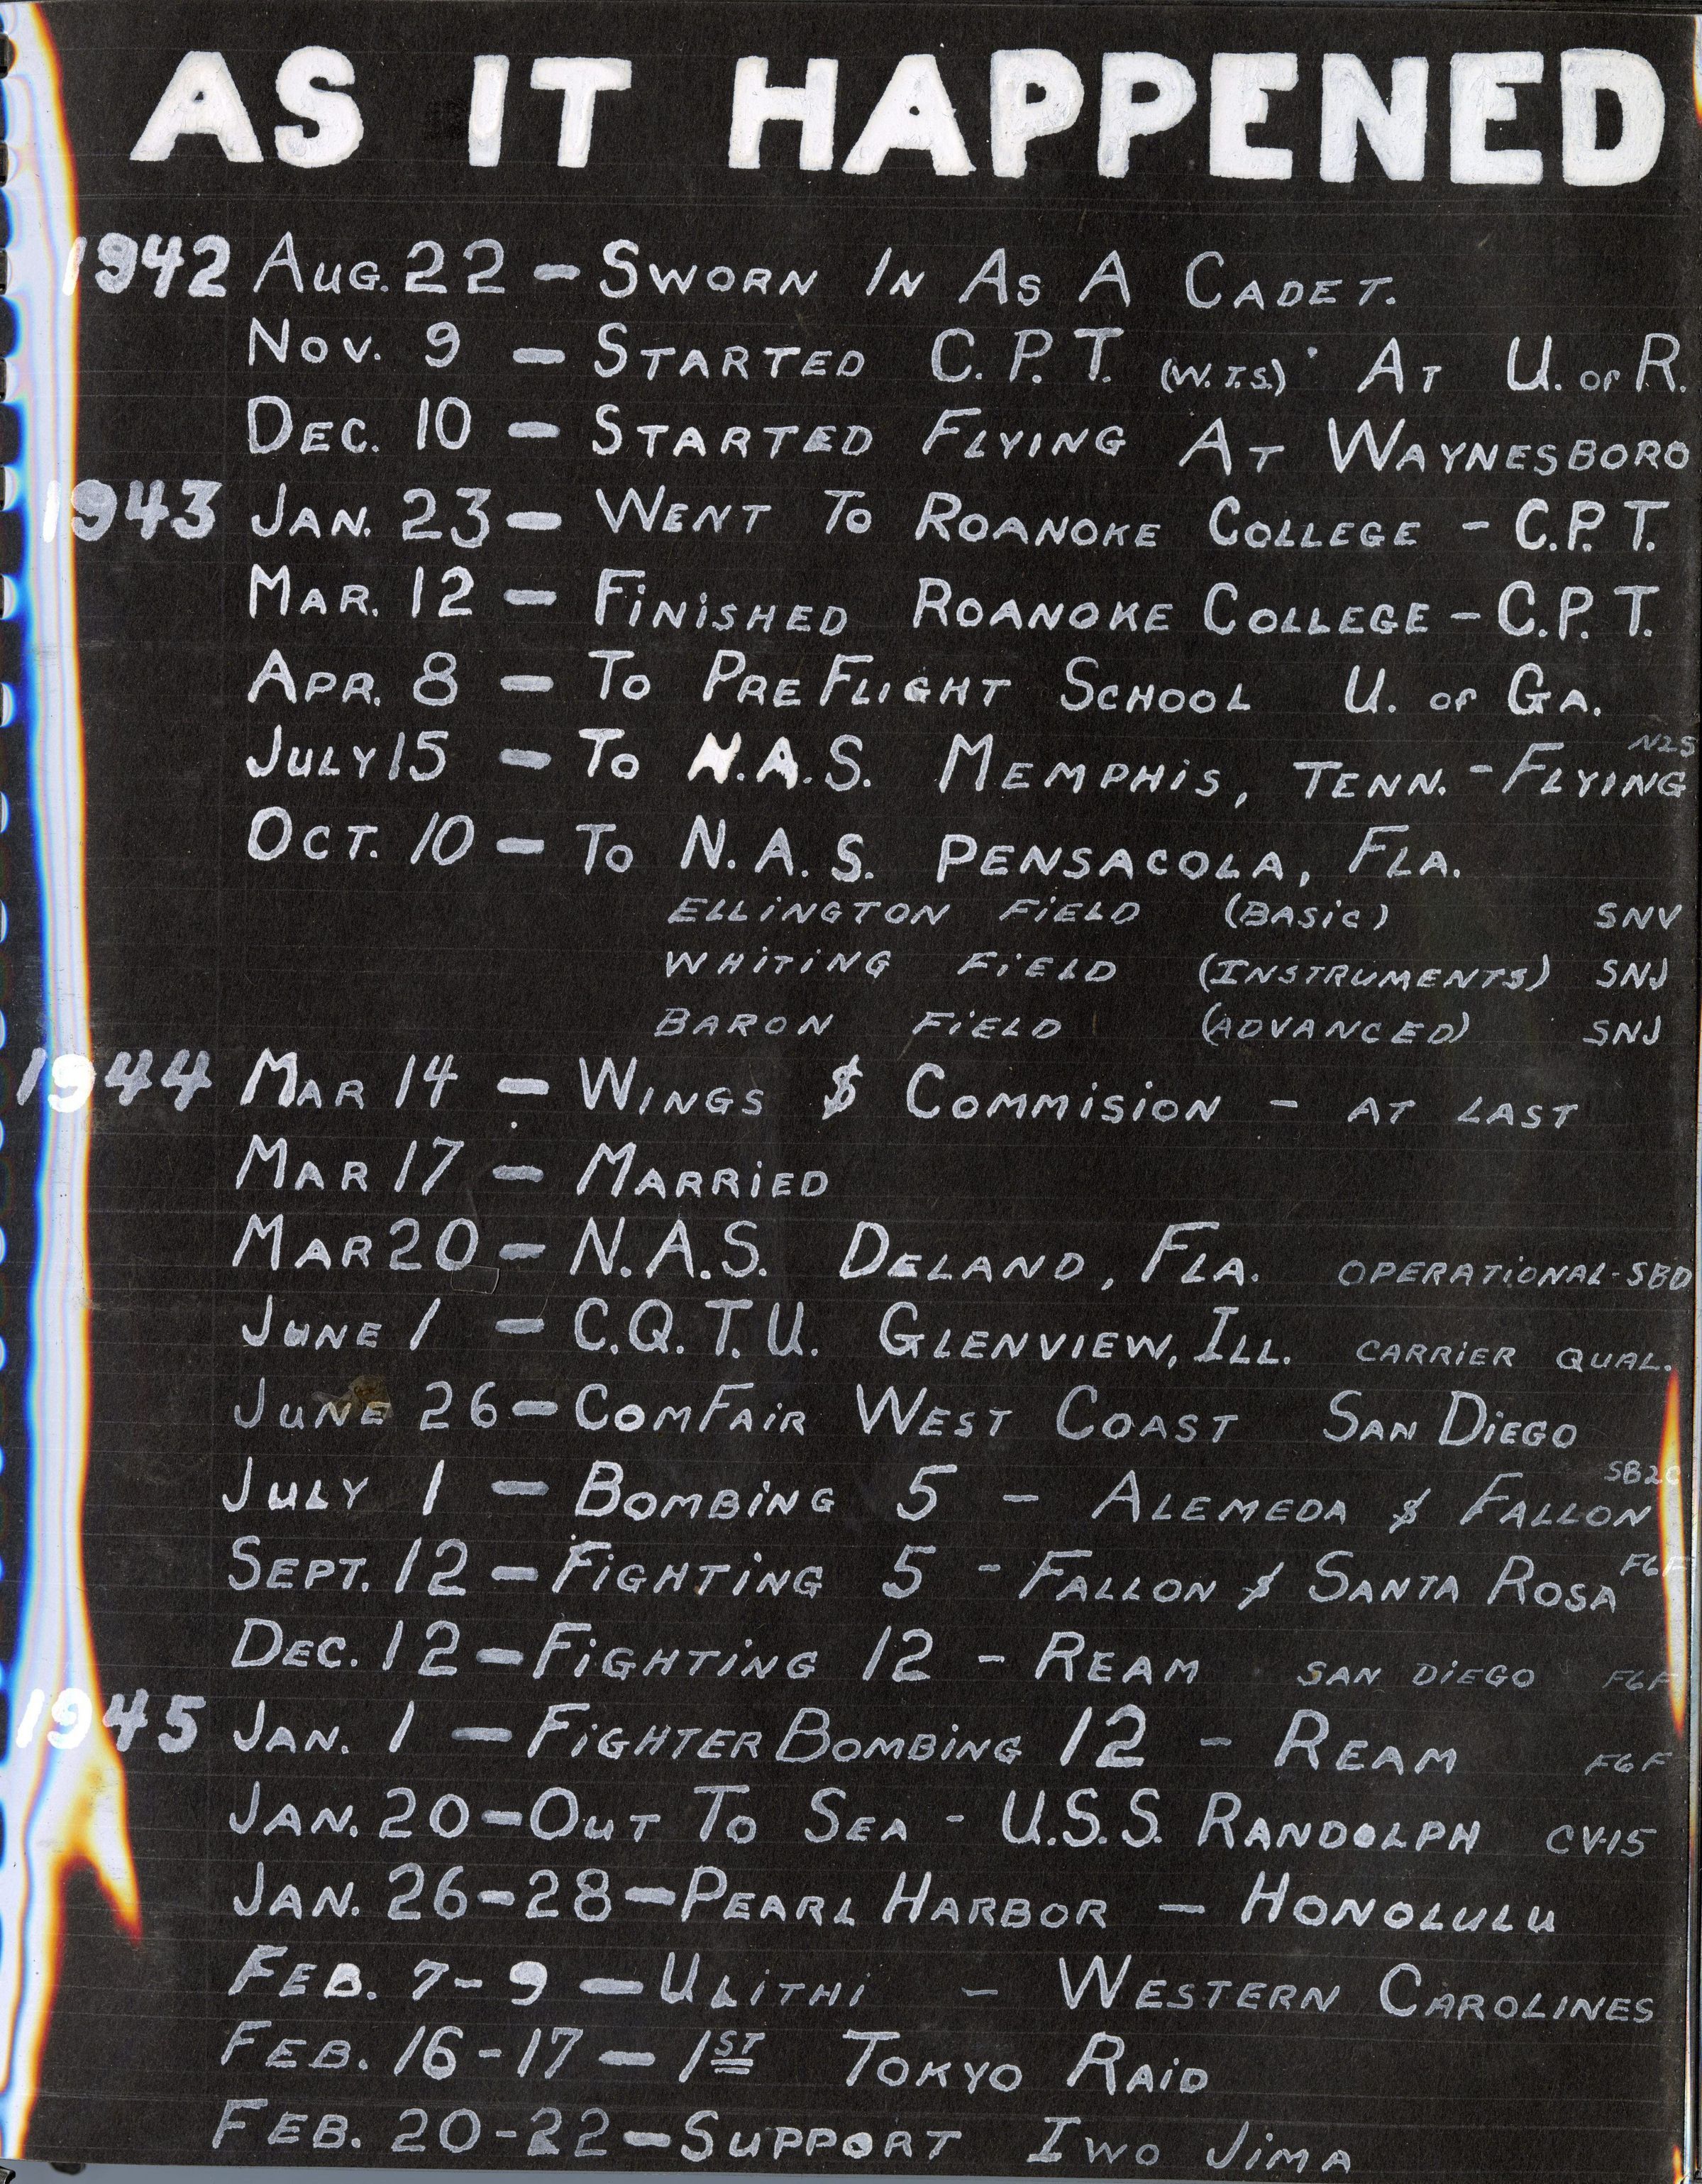 AS IT HAPPENED
1942 AUG. 22 - SWORN IN AS A CADET.
NOV. 9 - STARTED C.P.T. (W.T.S.) AT U. OF R.
DEC. 10 - STARTED FLYING AT WAYNESBORO
1943 JAN. 23 - WENT TO ROANOKE COLLEGE - C.P.T.
MAR. 12 - FINISHED ROANOKE COLLEGE - C.P.T.
APR. 8 - TO PREFLIGHT SCHOOL U. OF GA.
JULY 15 - TO N.A.S. MEMPHIS, TENN. - FLYING N2S
OCT. 10 - TO N.A.S. PENSACOLA, FLA.
ELLINGTON FIELD (BASIC) SNV
WHITING FIELD (INSTRUMENTS) SNJ
BARON FIELD (ADVANCED) SNJ
1944 MAR 14 - WINGS & COMMISION - AT LAST
MAR 17 - MARRIED
MAR 20 - N.A.S. DELAND, FLA. OPERATIONAL-SBD
JUNE 1 - C.Q.T.U. GLENVIEW, ILL. CARRIER QUAL.
JUNE 26 - COMFAIR WEST COAST SAN DIEGO
JULY 1 - BOMBING 5 - ALEMEDA & FALLON SB2C
SEPT. 12 - FIGHTING 5 - FALLON & SANTA ROSA F6F
DEC. 12 - FIGHTING 12 - REAM SAN DIEGO F6F
1945 JAN. 1 - FIGHTER BOMBING 12 - REAM F6F
JAN. 20 - OUT TO SEA - U.S.S. RANDOLPH CV-15
JAN. 26-28 - PEARL HARBOR - HONOLULU
FEB. 7-9 - ULITHI - WESTERN CAROLINES
FEB. 16-17 - 1ST TOKYO RAID
FEB. 20-22 - SUPPORT IWO JIMA